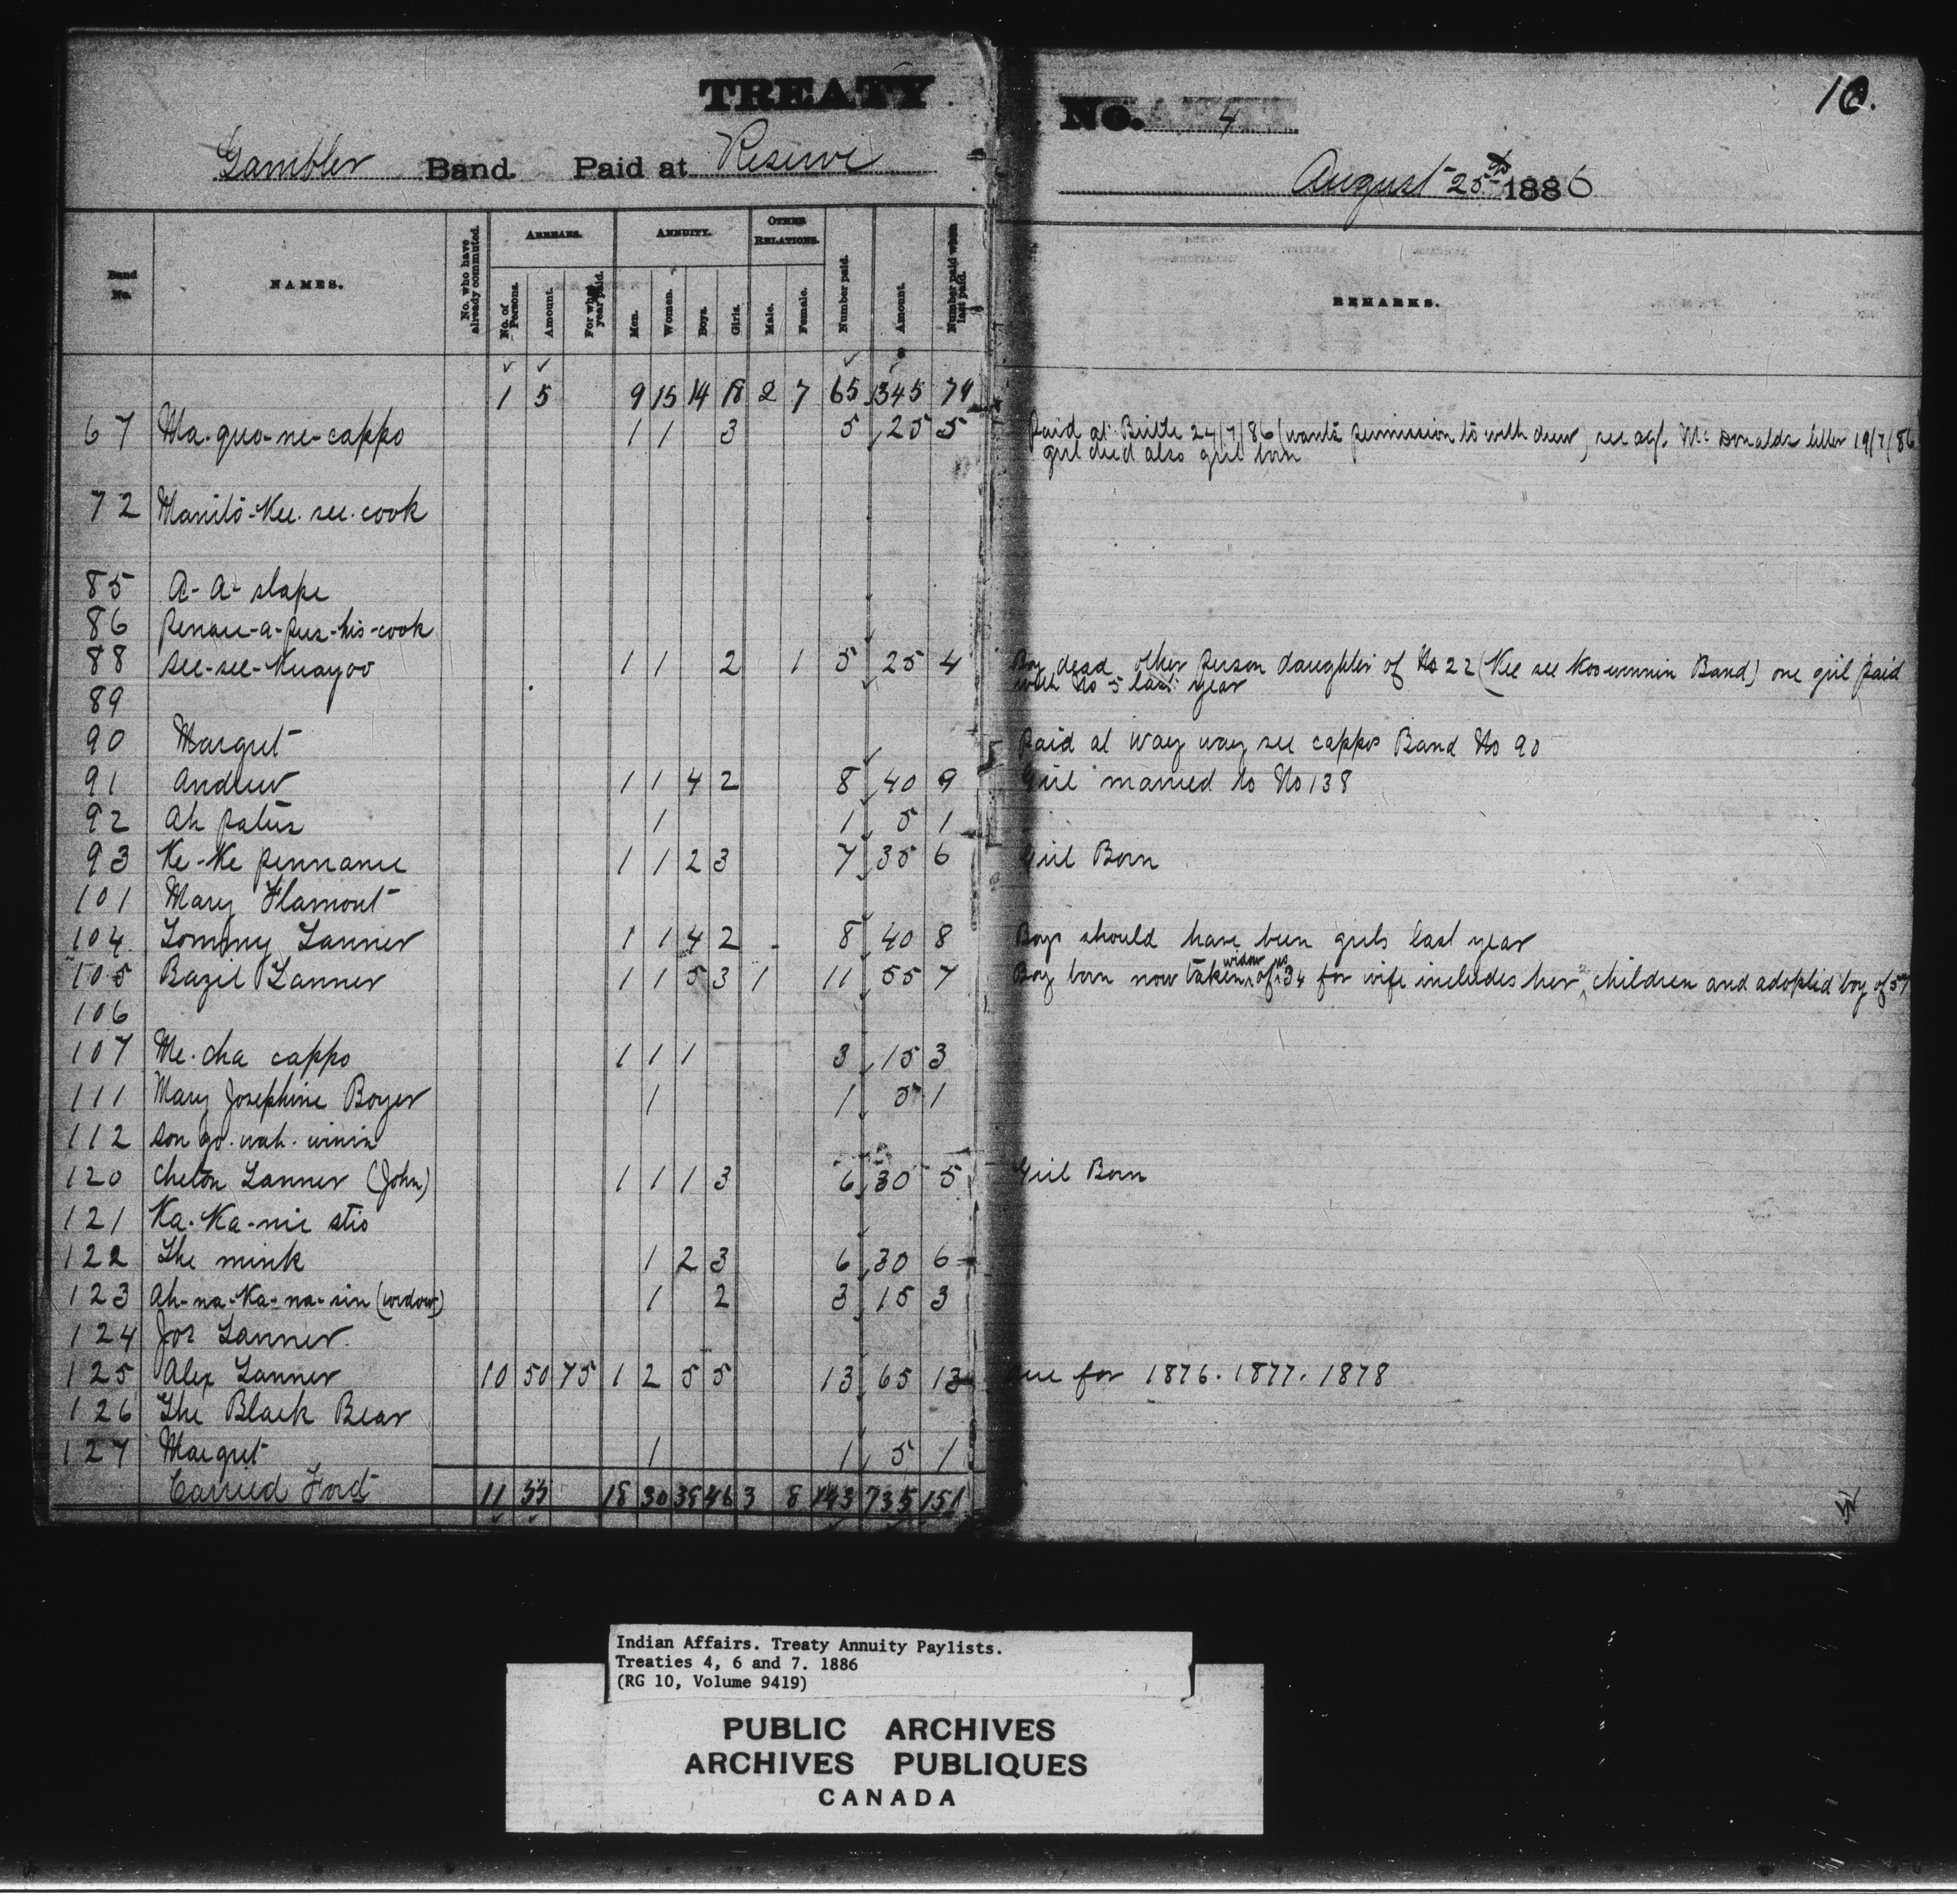 TREATY No. 4
10.
Gambler Band. Paid at Reserve
August 25th 1886
Band No. NAMES. No. who have already commuted. ARREARS. No. of Persons. Amount. For what year paid. ANNUITY. Men. Women. Boys. Girls. OTHER RELATIONS. Male. Female. Number paid. Amount. Number paid when last paid. REMARKS.
1 5 9 15 14 18 2 7 65 345 79
67 Ma-quo-ne-cappo 1 1 3 5 25 5 Paid at Birtle 24/7/86 (wants permission to with drew) see agt. McDonalds letter 19/7/86
girl died also girl born
72 Manito-Kee-see-cook
85 A-A-slape
86 Penace-a-pus-his-cook
88 See-see-Kuayoo 1 1 2 1 5 25 4 Boy dead other person daughter of No 22 (Kee see Koo-wennin Band) one girl paid
with No 5 last year
89
90 Margret Paid at Way way see cappos Band No 90
91 Andrew 1 1 4 2 8 40 9 Girl married to No 138
92 Ah patus 1 1 5 1
93 Ke-Ke pennance 1 1 2 3 7 35 6 Girl Born
101 Mary Flamout
104 Tommy Tanner 1 1 4 2 8 40 8 Boys should have been girls last year
105 Bazil Tanner 1 1 5 3 1 11 55 7 Boy born now taken widow of no 34 for wife includes her children and adopted boy of 57
106
107 Me-cha cappo 1 1 1 3 15 3
111 Mary Josephine Boyer 1 1 5 1
112 Son go-wah-winin
120 Cheton Tanner (John) 1 1 1 3 6 30 5 Girl Born
121 Ka-Ka-nie stio
122 The mink 1 2 3 6 30 6
123 Ah-na-Ka-na-sin (widow) 1 2 3 15 3
124 Jos Tanner
125 Alex Tanner 10 50 75 1 2 5 5 13 65 13 due for 1876. 1877. 1878
126 The Black Bear
127 Margret 1 1 5 1
Carried Ford 11 55 18 30 38 46 3 8 143 735 151
Indian Affairs. Treaty Annuity Paylists.
Treaties 4, 6 and 7. 1886
(RG 10, Volume 9419)
PUBLIC ARCHIVES
ARCHIVES PUBLIQUES
CANADA